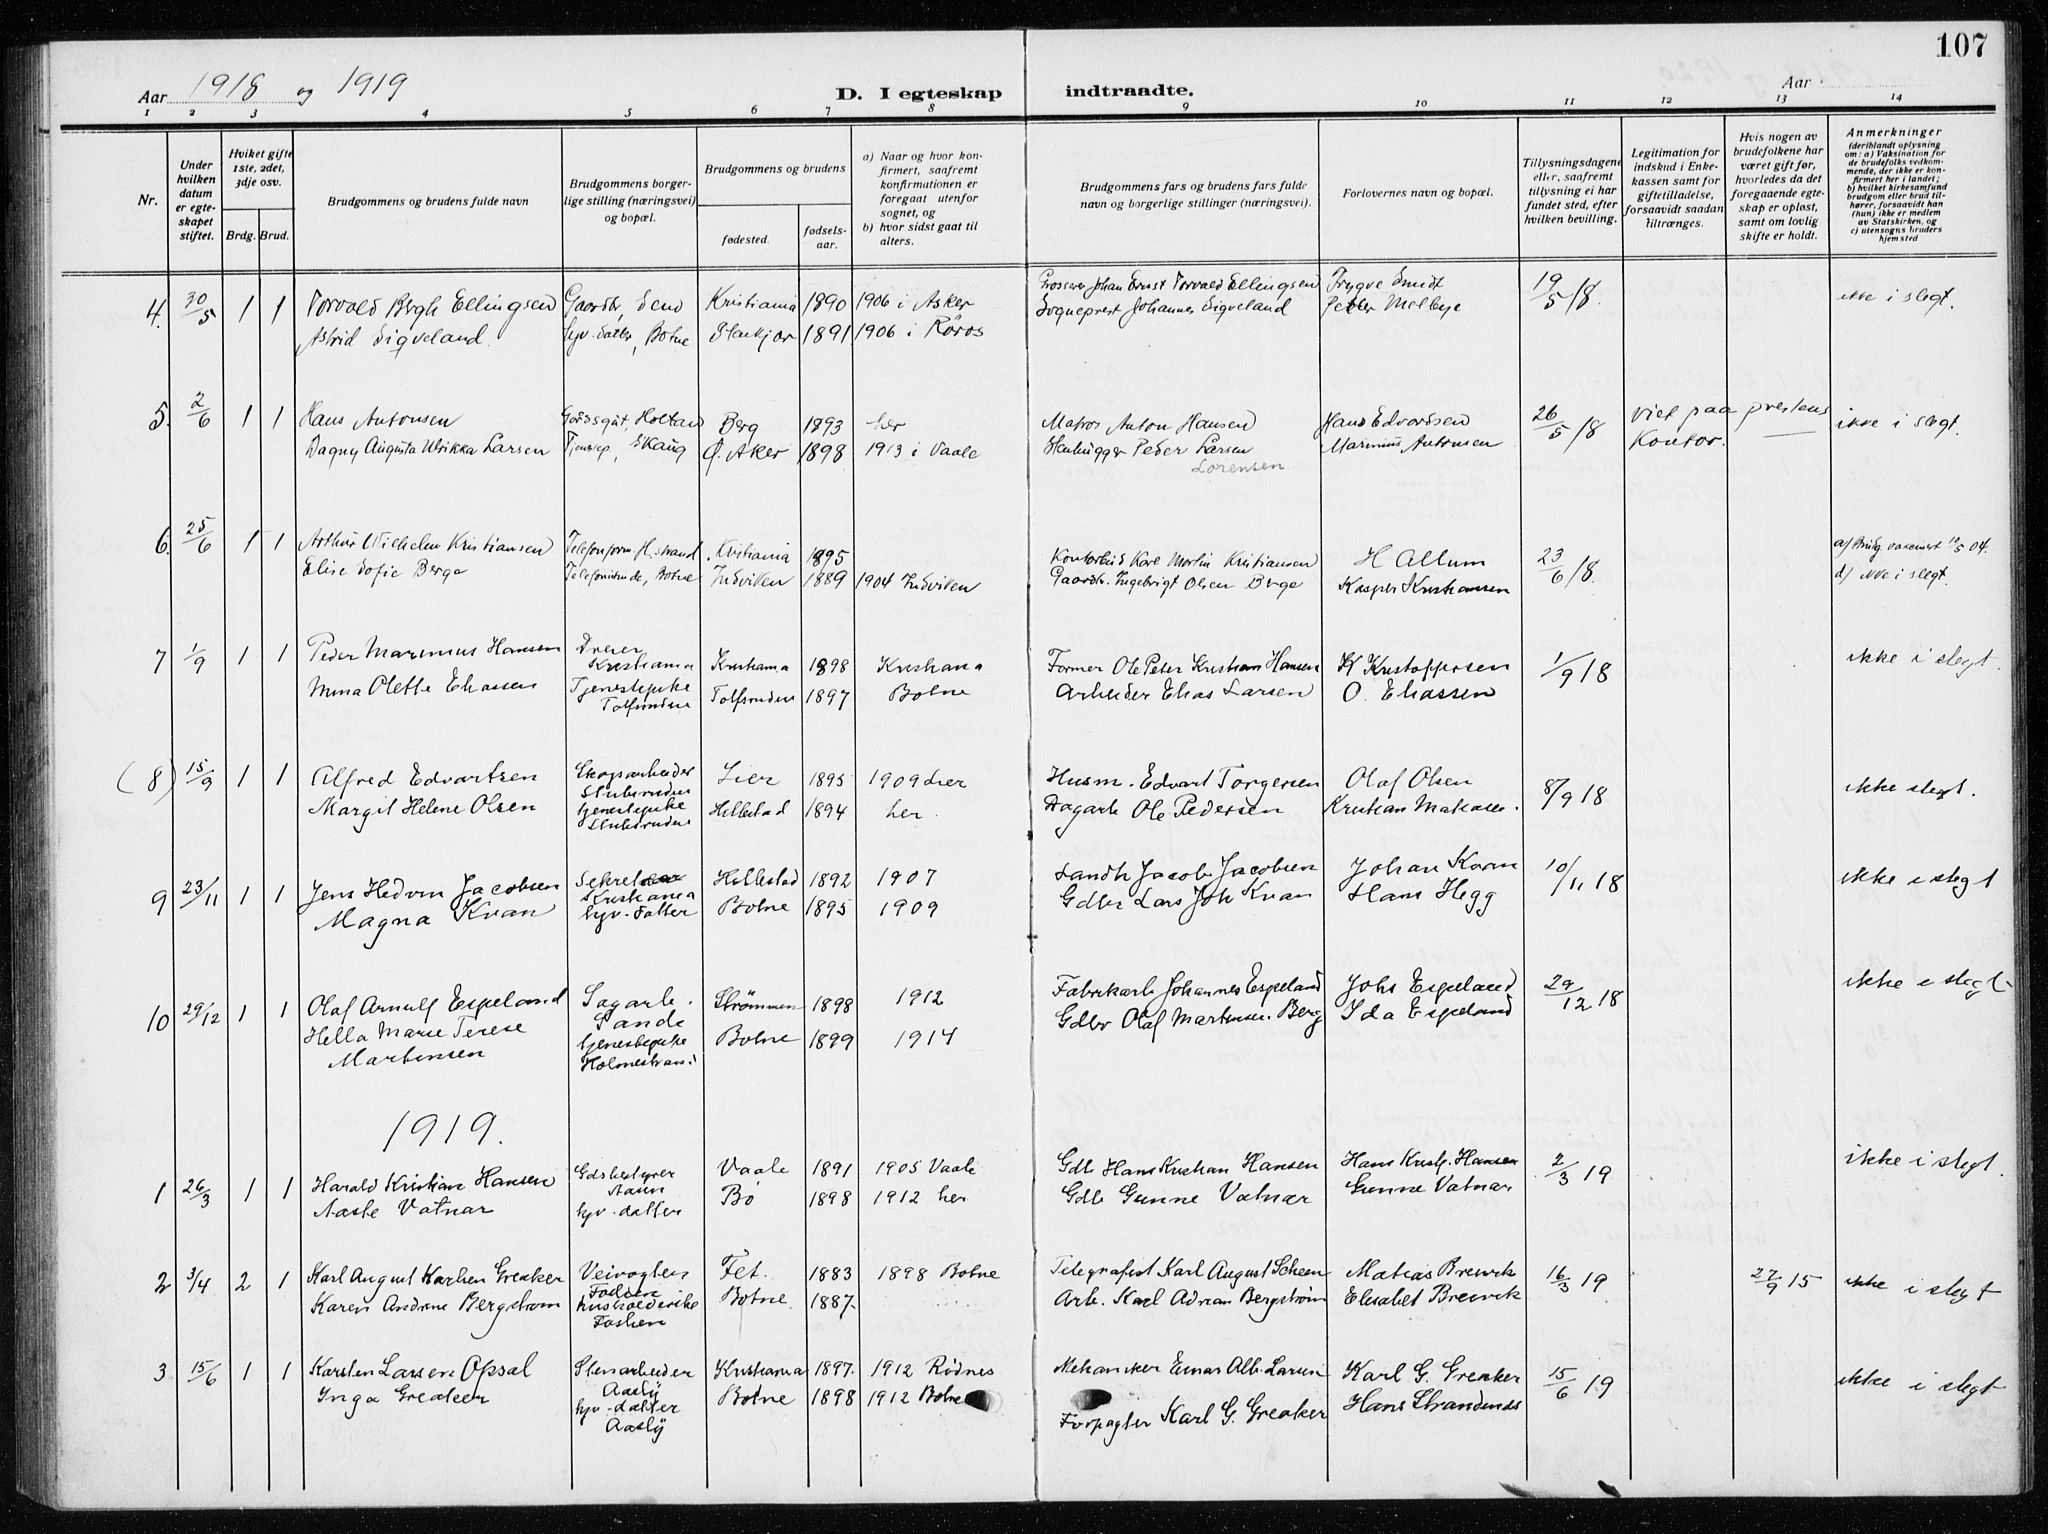 107
Aar 1918 og 1919 D. I egteskap indtraadte. Aar
1 2 3 4 5 6 7 8 9 10 11 12 13 14
Nr.
Under hvilken datum er egteskapet stiftet.
Hviket gifte 1ste, 2det, 3dje osv.
Brdg. Brud.
Brudgommens og brudens fulde navn
Brudgommens borgerlige stilling (næringsvei) og bopæl.
Brudgommens og brudens
fødested.
fødselsaar.
a) Naar og hvor konfirmert, saafremt konfirmationen er foregaat utenfor sognet, og
b) hvor sidst gaat til alters.
Brudgommens fars og brudens fars fulde navn og borgerlige stillinger (næringsvei).
Forlovernes navn og bopæl.
Tillysningsdagene eller, saafremt tillysning ei har fundet sted, efter hvilken bevilling.
Legitimation for indskud i Enkekassen samt for giftetilladelse, forsaavidt saadan tiltrænges.
Hvis nogen av brudefolkene har været gift før, hvorledes da det foregaaende egteskap er opløst, samt om lovlig skifte er holdt.
Anmerkninger
(deriblandt oplysning om: a) Vaksination for de brudefolks vedkommende, der ikke er konfirmert her i landet; b) hvilket kirkesamfund brudgom eller brud tilhører, forsaavidt han (hun) ikke er medlem av Statskirken, og c) utensogns bruders hjemsted
4. 30/5 1 1 Torvald Bergh Ellingsen Gaardbr, Sem Kristiania 1890 1906 i Asker Grosserer Johan Ernst Torvald Ellingsen Trygve Smidt 19/5 18. ikke i slegt.
Astrid Sigveland hjv. datter, Botne Stenkjær 1891 1906 i Røros Sogneprest Johannes Sigveland Peter Melbye
5. 2/6 1 1 Hans Antonsen Gårdsgut, Holtan Berg 1893 her Matros Anton Hansen Hans Edvardsen 26/5 18 viet paa prestens ikke i slegt.
Dagny Augusta Ulrikka Larsen Tjenerp, Skaug Ø. Aker 1898 1913 i Vaale Stenhugger Peder Larsen Marinius Antonsen Kontor.
Lorensen
6. 25/6 1 1 Arthur Wilhelm Kristiansen Telefonform. H.strand Kristiania 1895 Kontorbud Karl Martin Kristiansen H Allum 23/6 18. a) Brudg vaccinert 10/5 04.
Elise Sofie Berge Telefonistinde, Botne Indviken 1889 1904 Indviken Gaardbr. Ingebrigt Olsen Berge Kasper Kristiansen d) ikke i slegt.
7 1/9 1 1 Peder Marinius Hansen Dreier Kristiania Kristiania 1898 Kristiania Former Ole Peter Kristian Hansen K Kristoffersen 1/9 18 ikke i slegt.
Mina Olette Eliassen Tjenestepike Tolfsruden Tolfsruden 1897 Botne Arbeider Elias Larsen O. Eliassen
(8) 15/9 1 1 Alfred Edvartsen Skogsarbeider Stubsruden Lier 1895 1909 Lier Husm. Edvart Torgersen Olaf Olsen 8/9 18 ikke slegt.
Margit Helene Olsen tjenestepike Stubsruden Hillestad 1894 her. Dagarb Ole Pedersen Kristian Matiasen.
9 23/11 1 1 Jens Hedvin Jacobsen Sekretær Kristiania Hillestad 1892 1907 Landh Jacob Jacobsen Johan Kvan 10/11 18 ikke i slegt
Magna Kvan hjv. datter Botne 1895 1909 Gdbr Lars Joh Kvan Hans Hegg
10 29/12 1 1 Olaf Arnulf Espeland Sagarb. Sande Strømmen 1898 1912 Fabrikarb Johannes Espeland Johs Espeland 29/12 18 ikke i slegt.
Hella Marie Terese Martinsen tjenestepike Holmestrand Botne 1899 1914 Gdbr Olaf Martinsen Berg Ida Espeland
1919.
1 26/3 1 1 Harald Kristian Hansen Gdsbestyrer Vaale 1891 1905 Vaale Gdb Hans Kristian Hansen Hans Krist. Hansen 2/3 19 ikke i slegt.
Aaste Vatnar hjv. datter Bø 1898 1912 her Gdb Gunne Vatnar Gunne Vatnar
2 3/4 2 1 Karl August Karlsen Greaker Veivogter Fet. 1883 1898 Botne Telegrafist Karl August Scheen Matias Brewik 16/3 19 27/9 15 ikke i slegt
Karen Andrine Bergstrøm husholderske Botne 1887. Arb. Karl Adrian Bergstrøm Elisabet Brewik
3 15/6 1 1 Karsten Larsen Opsal Stenarbeider Aasly Kristiania 1897. 1912 Rødnes Mekaniker Einar Alb. Larsen Karl G. Greaker 15/6 19 ikke i slegt
Inga Greaker hjv. datter Aasly Botne 1898 1912 Botne Forpagter Karl G. Greaker Hans Strandenæs